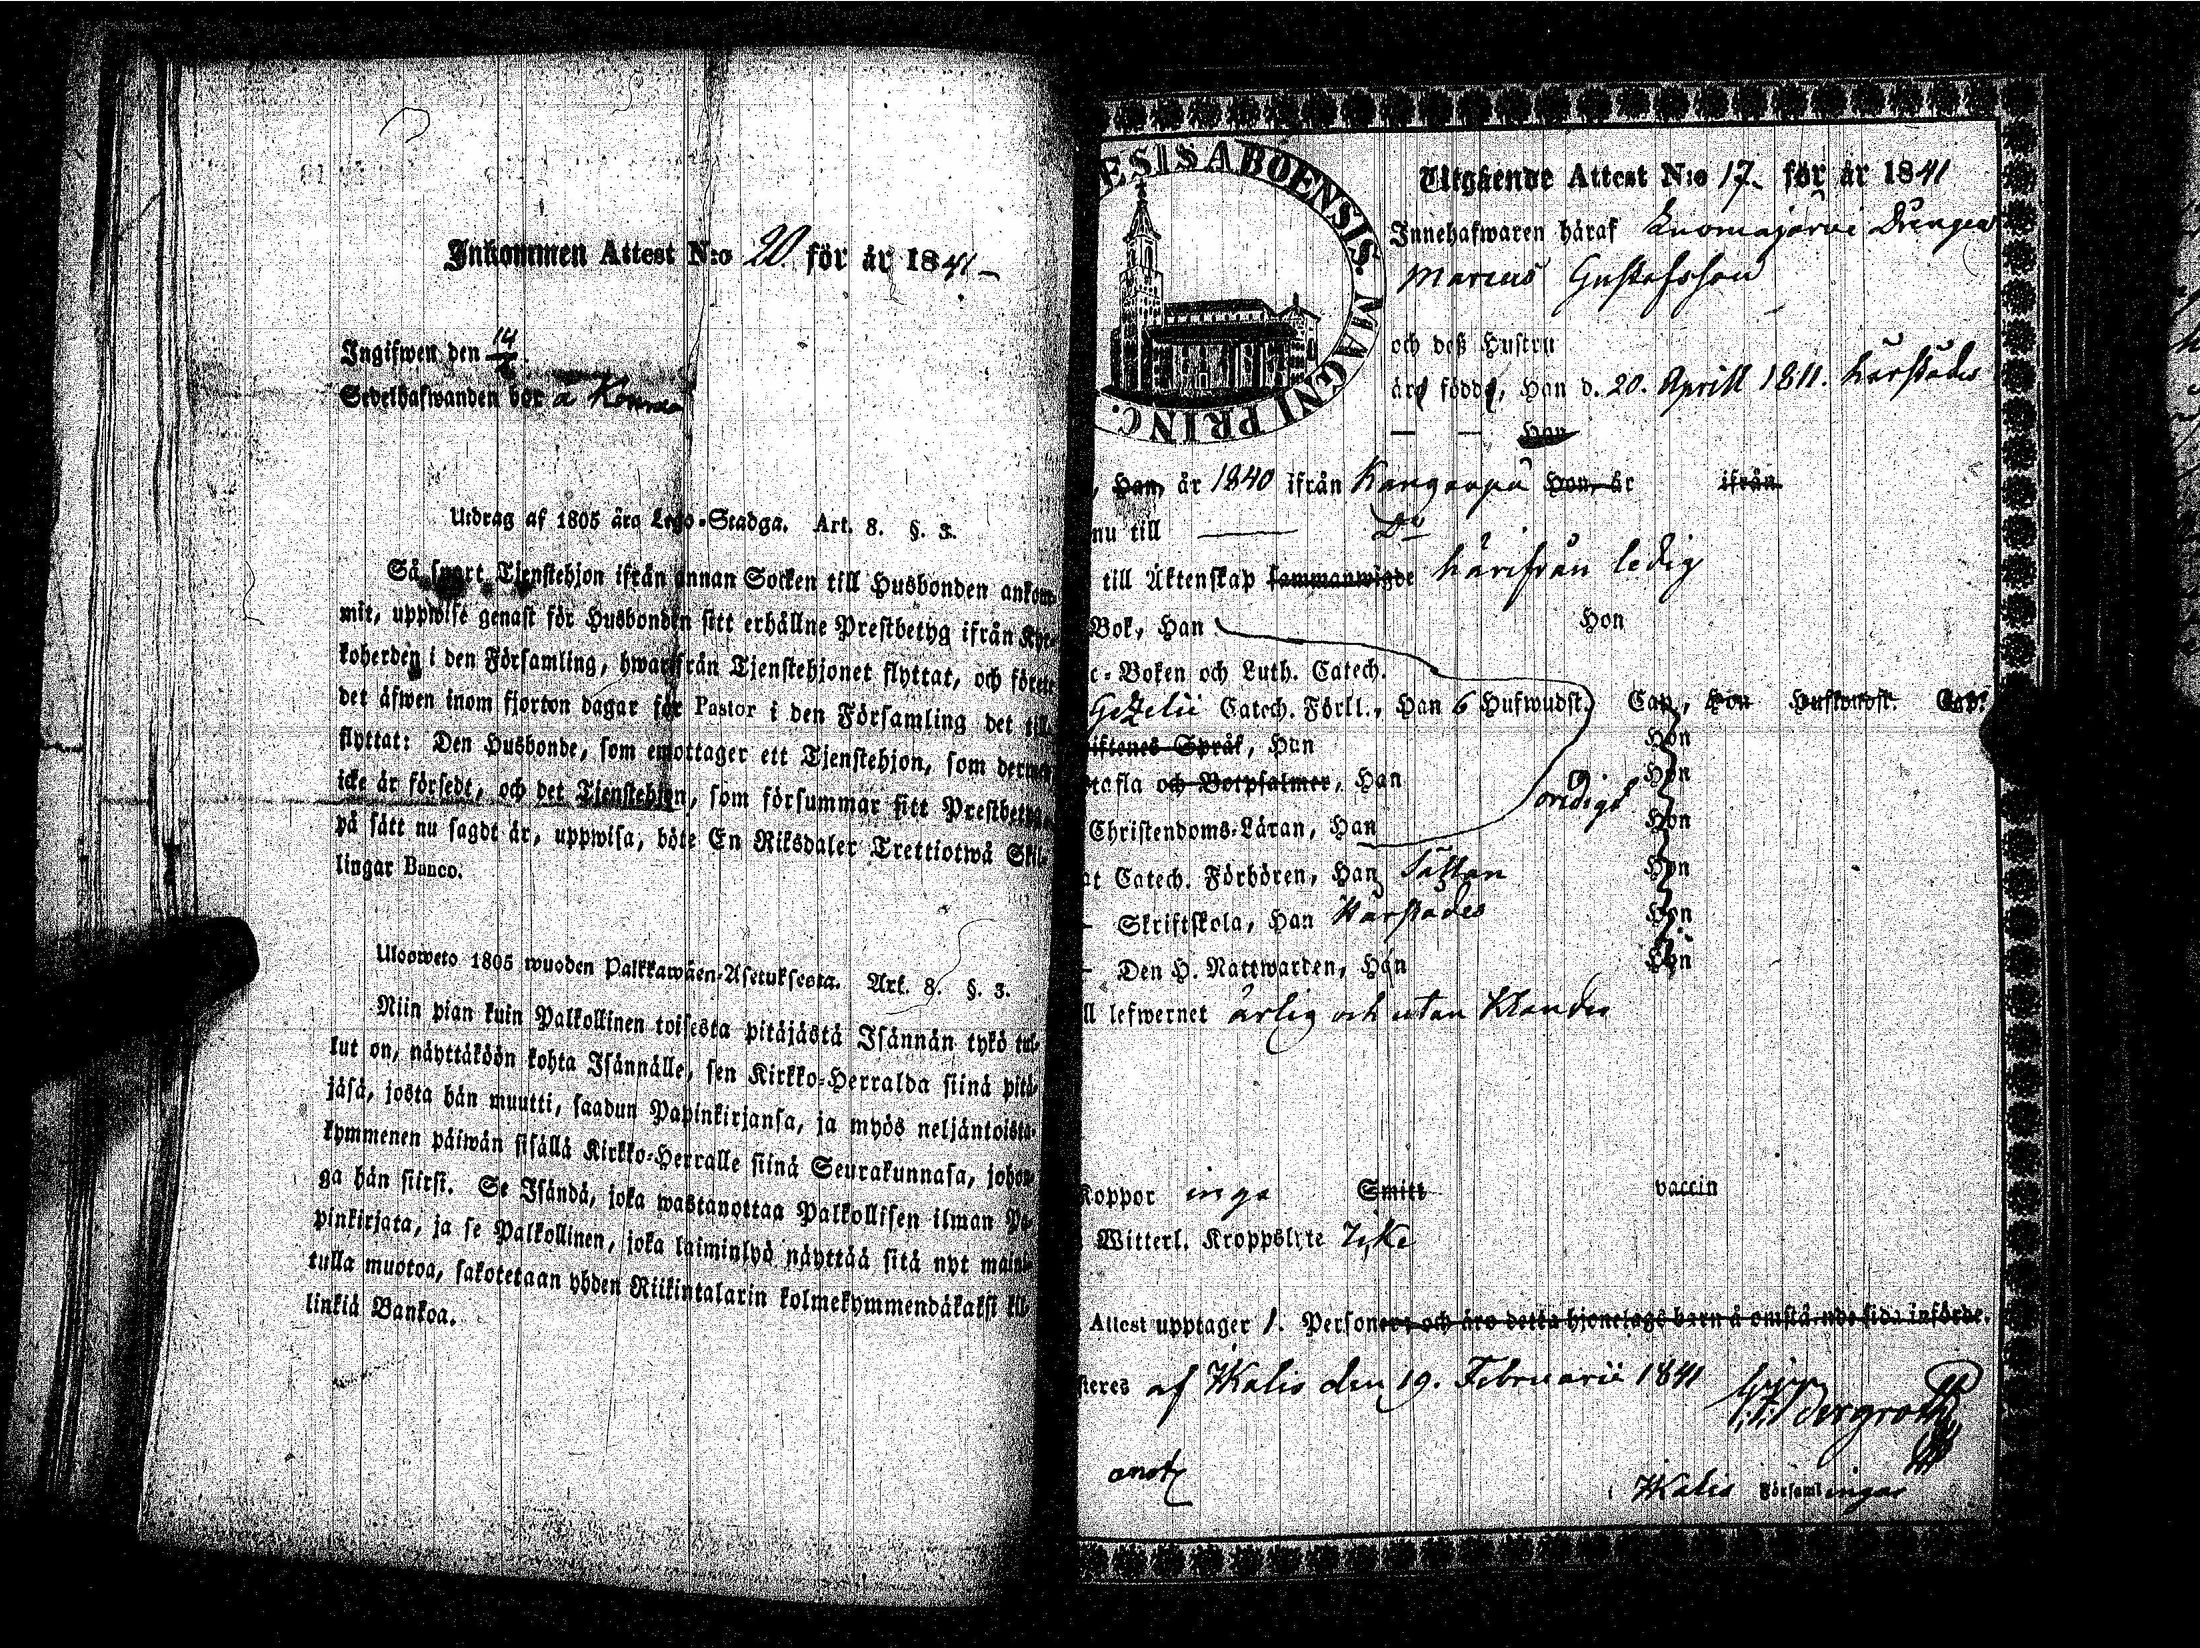 Inkommen Attest N:o 20. för år 1841
Ingifwen den 14
Sedelhafwanden bor å
Utdrag af 1805 års Lego-Stadga. Art. 8. §. 3.
Så snart Tjenstehjon ifrån annan Socken till Husbonden ankom-
mit, uppwise genast för Husbonden sitt erhållne Prestbetyg ifrån Kyr-
koherden i den Församling, hwarifrån Tjenstehjonet flyttat, och förete
det äfwen inom fjorton dagar för Pastor i den Församling det till-
flyttat: Den Husbonde, som emottager ett Tjenstehjon, som dermed
icke är försedt, och det Tjenstehjon, som försummar sitt Prestbetyg,
på sätt nu sagdt är, uppwisa, böte En Riksdaler Trettiotwå Skil-
lingar Banco.
Ulosweto 1805 wuoden Palkkawäen-Asetuksesta. Art. 8. §. 3.
Niin pian kuin Palkollinen toisesta pitäjästä Isännän tykö tul-
lut on, näyttäköön kohta Isännälle, sen Kirkko-Herralda siinä pitä-
jäsä, josta hän muutti, saadun Papinkirjansa, ja myös neljäntoista-
kymmenen päiwän sisällä Kirkko-Herralle siinä Seurakunnasa, johon-
ga hän siirsi. Se Isändä, joka wastanottaa Palkollisen ilman Pa-
pinkirjata, ja se Palkollinen, joka laiminlyö näyttää sitä nyt maini-
tulla muotoa, sakotetaan yhden Riikintalarin kolmekymmendäkaksi kil-
linkiä Bankoa.
ESIS ABOENSIS. MAGNI PRINC.
Utgående Attest N:o 17. för år 1841
Innehafwaren häraf Drengen
Marcus Gustafsson
och deß Hustru
äro födde, Han d. 20. Aprill 1811. härstädes
— — Hon
, Han, år 1840 ifrån Kangarpä Hon, år ifrån
nu till — Do
till Äktenskap sammanwigde härifrån ledig
Bok, Han Hon
c-Boken och Luth. Catech.
Gezelii Catech. Förkl., Han 6 Hufwudst. Cap, Hon Hufwudst. Cap.
iftenes Språk, Han Hon
tafla och Botpsalmer, Han Hon
Christendoms-Läran, Han Hon
at Catech. Förhören, Han Hon
Skriftskola, Han härstädes Hon
Den H. Nattwarden, Han Hon
ll lefwernet ärlig och utan klander
Koppor inga Smitt vaccin
Witterl. Kroppslyte Icke
Attest upptager 1. Personer, och äro detta hjonelags barn å omstående sida införde.
steres af Kalis den 19. Februarii 1841
Bergroth
anot
Kalis Församlingar